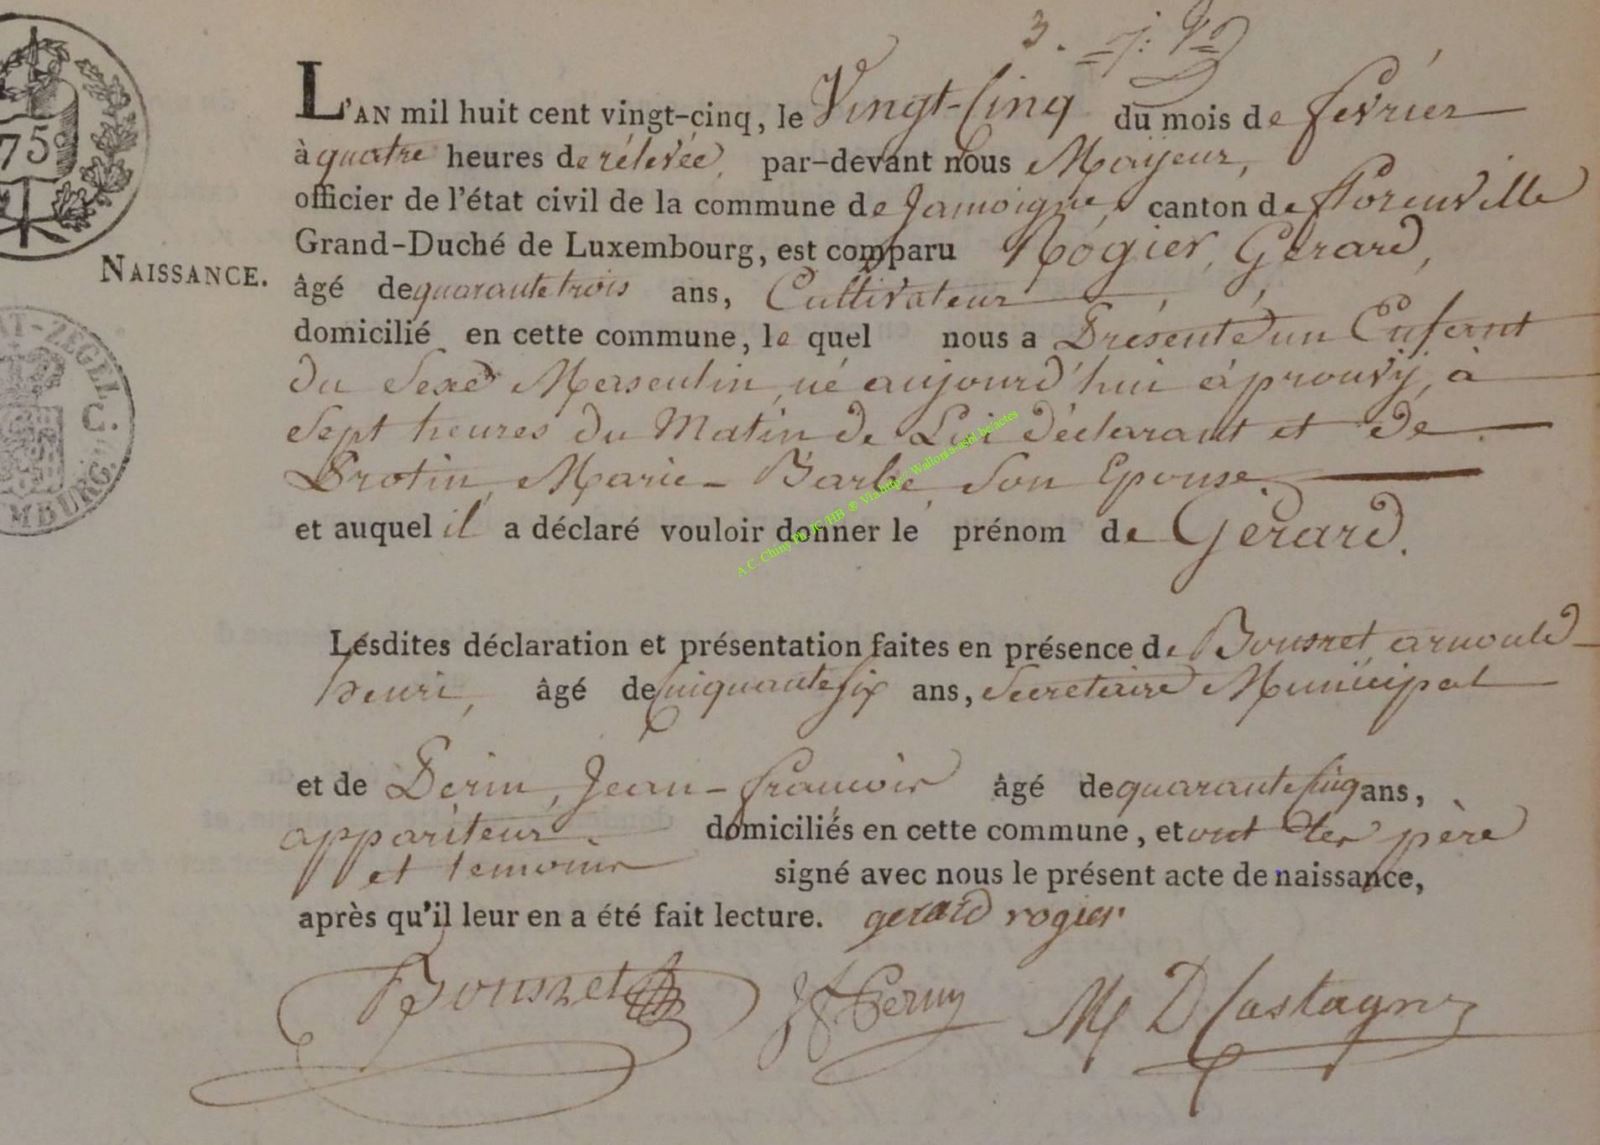 3.
75
L'AN mil huit cent vingt-cinq, le Vingt-Cinq du mois de fevrier
à quatre heures de rélevée, par-devant nous Mayeur,
officier de l'état civil de la commune de Jamoigne, canton de florenville
Grand-Duché de Luxembourg, est comparu Rogier, Gerard,
NAISSANCE.
âgé de quarante trois ans, Cultivateur
domicilié en cette commune, le quel nous a Présenté un Enfant
du Sexe Masculin, né aujourd'hui à prouvy, à
Sept heures du Matin de Lui déclarant et de
Protin, Marie-Barbe, Son Epouse
et auquel il a déclaré vouloir donner le prénom de Gerard.
Lesdites déclaration et présentation faites en présence de Bousret arnould
henri, âgé de Cinquante Six ans, Secretaire Municipal
et de Perin, Jean-francois âgé de quarante Cinq ans,
appariteur domiciliés en cette commune, et ont les père
et temoins signé avec nous le présent acte de naissance,
après qu'il leur en a été fait lecture. gerard rogier
Bousret JF Perin M D Castagne
A.C. Chiny Ph. JC HB © Via http:// Wallonia-asbl.be/actes